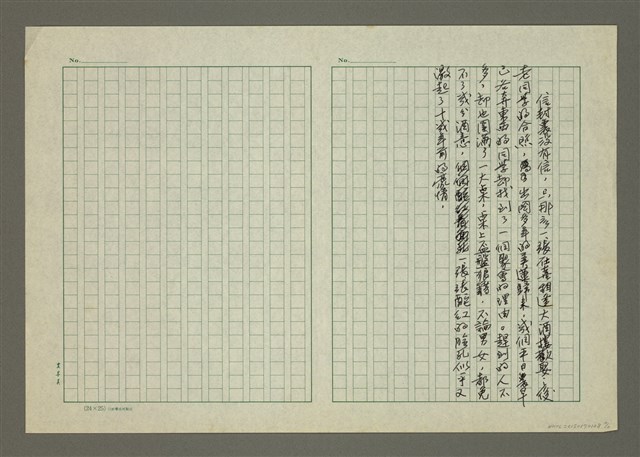 No.
信封裏沒有信，只那么一張在喜相逢大酒樓歡聚後
老同学的合照，出國多年的美蓮歸來，我们平日
已各奔東西的同学却找到了一個聚會的理由。趕到的人不
多，却也圍滿了一大桌，桌上盃盤狼籍，不論男女，都免
不了或分酒意，個個一張張酡紅的臉孔似乎又
激起了十幾年前的豪情。
No.
(24×25)